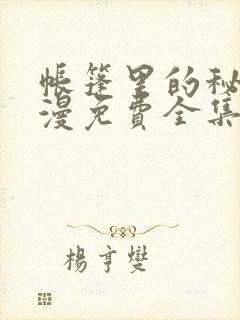 帐篷里的秘
漫免费全集
杨亨燮